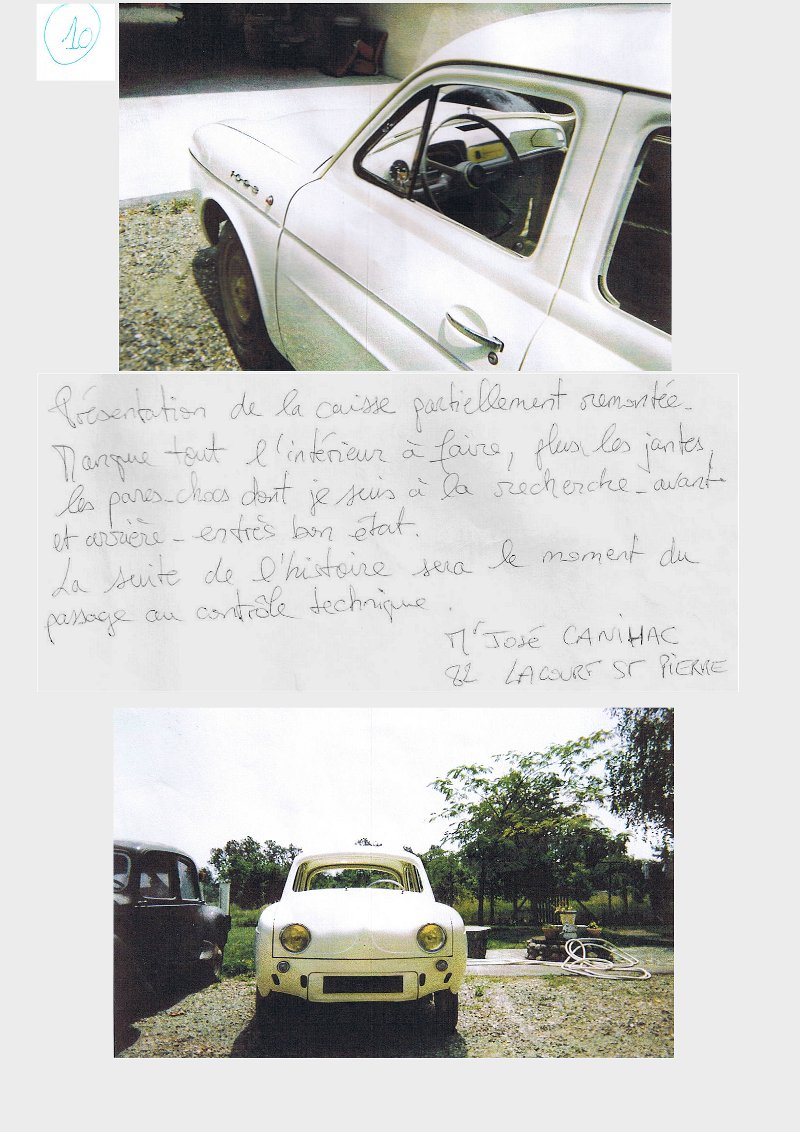 10
1093
Présentation de la caisse partiellement remontée.
Manque tout l'intérieur à faire, plus les jantes,
les pares-chocs dont je suis à la recherche - avant
et arrière - entrès bon état.
La suite de l'histoire sera le moment du
passage au contrôle technique.
Mr José CANIHAC
82 LACOURT ST PIERRE